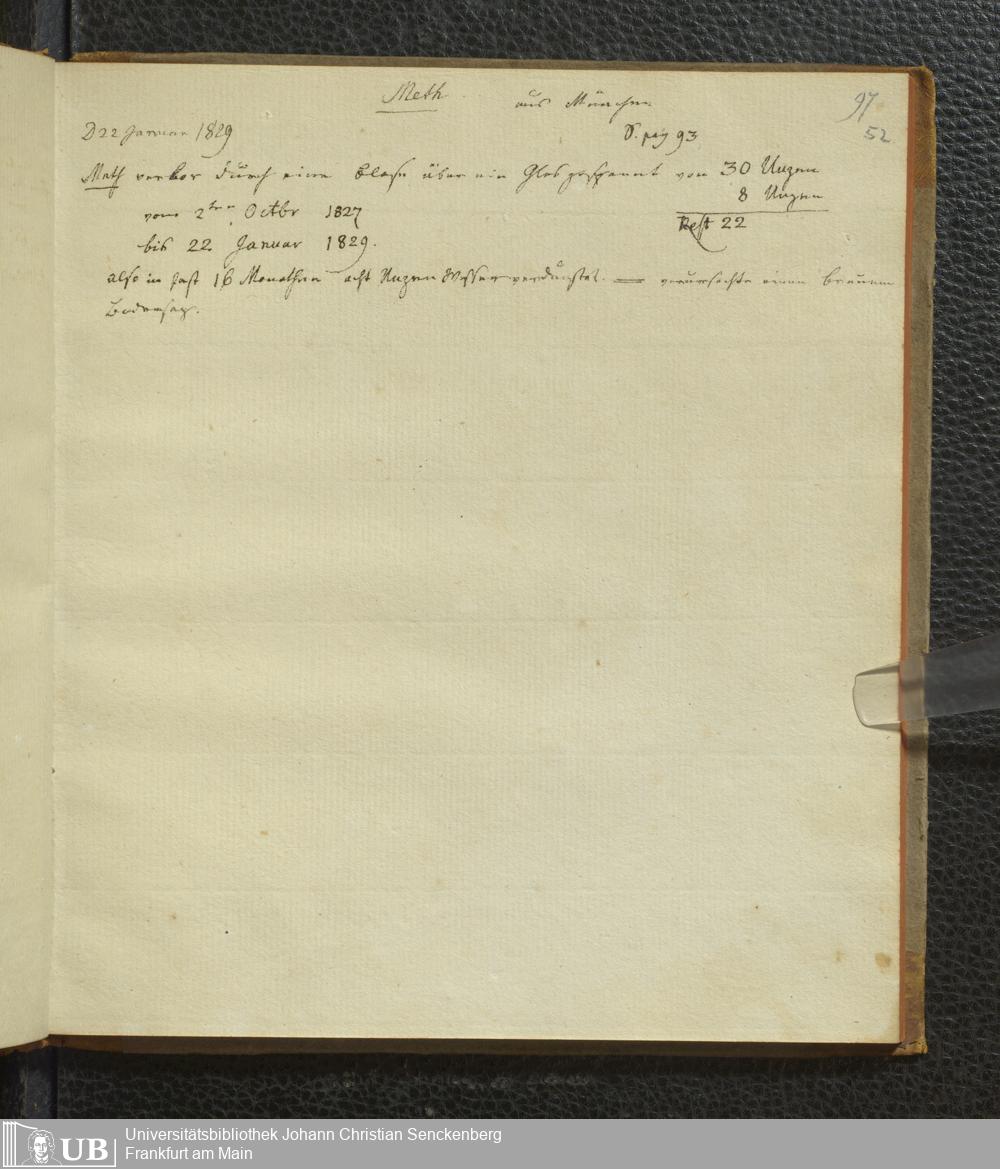 Meth aus München
97
52
D 22 Januar 1829
S. pag 93
Meth verlor durch eine Blase über ein Glas gespannt von 30 Unzen
8 Unzen
vom 2ten Octbr 1827
Rest 22
bis 22 Januar 1829.
also in fast 16 Monathen acht Unzen Wasser verdünstet. = verursachte einen braunen
Bodensaz.
UB
Universitätsbibliothek Johann Christian Senckenberg
Frankfurt am Main